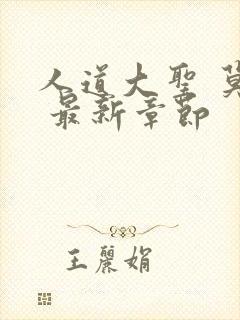 人道大聖 莫
最新章節
王麗娟